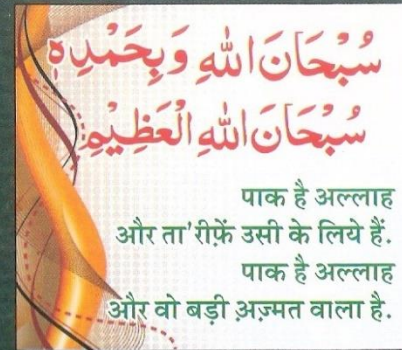 سُبْحَانَ اللهِ وَبِحَمْدِهٖ
سُبْحَانَ اللهِ الْعَظِيْمِ
पाक है अल्लाह
और ता'रीफ़ें उसी के लिये हैं.
पाक है अल्लाह
और वो बड़ी अ़ज़्मत वाला है.